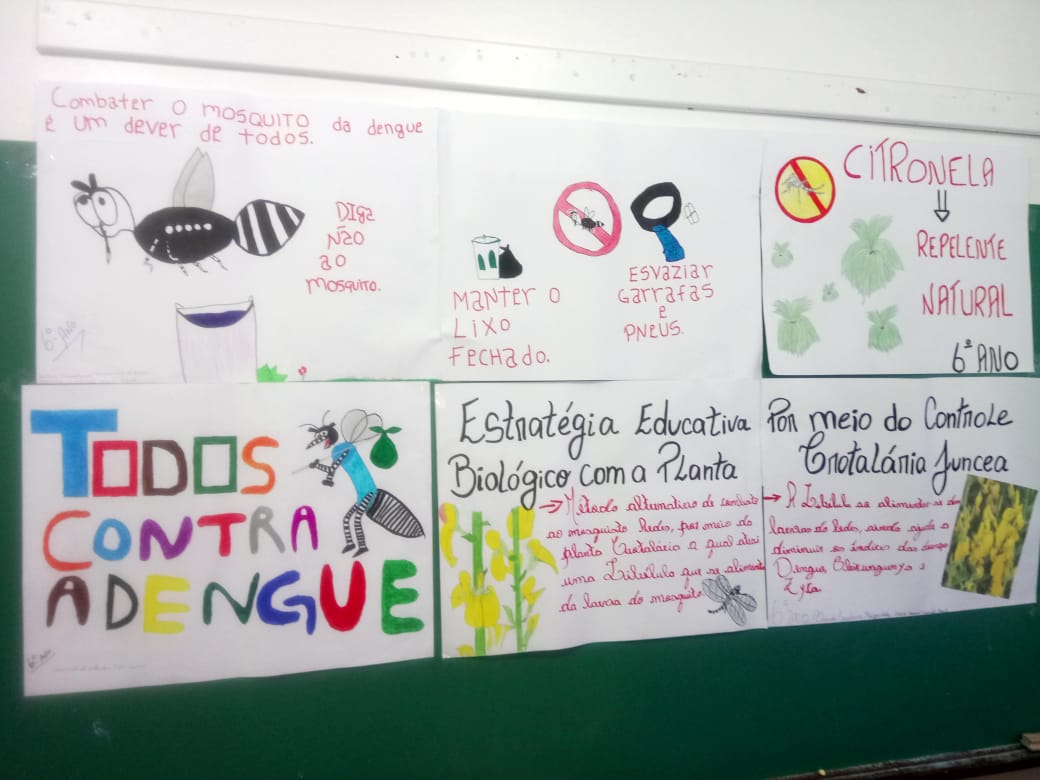 Combater o mosquito da dengue
é um dever de todos.
Diga
Não
ao
mosquito.
6º Ano
Manter o
Lixo
Fechado.
Esvaziar
Garrafas
e
Pneus.
CITRONELA
REPELENTE
NATURAL
6º ANO
TODOS
CONTRA
A DENGUE
6º Ano
Estratégia Educativa Por meio do Controle
Biológico com a Planta Crotalária Juncea
Método alternativo de combate
ao mosquito Aedes, por meio da
planta Crotalária a qual atrai
uma Libélula que se alimenta
da larva do mosquito.
A Libélula ao alimentar-se das
larvas do Aedes, ajuda a
diminuir os índices das doenças
Dengue, Chikungunya e
Zika
6º Ano